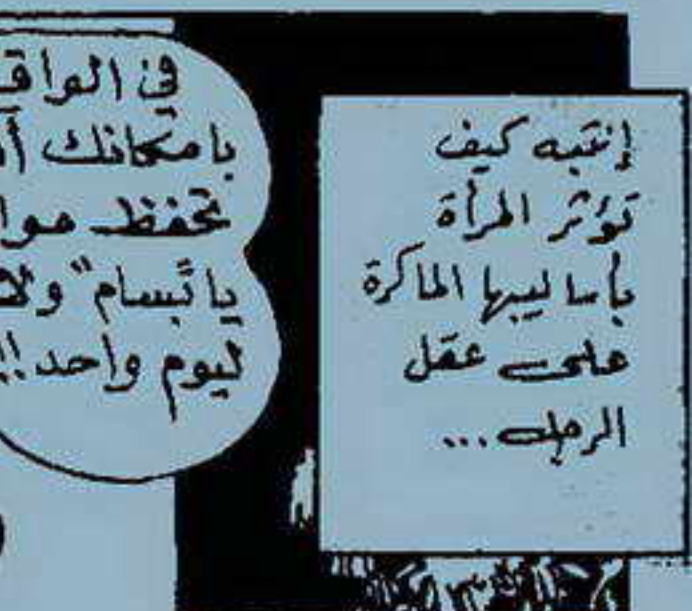 إنتبه كيف
تؤثر المرأة
بأساليبها الماكرة
على عقل
الرجل...
في
بامكانك
تحفظ
يا بسام"
ليوم واحد!!